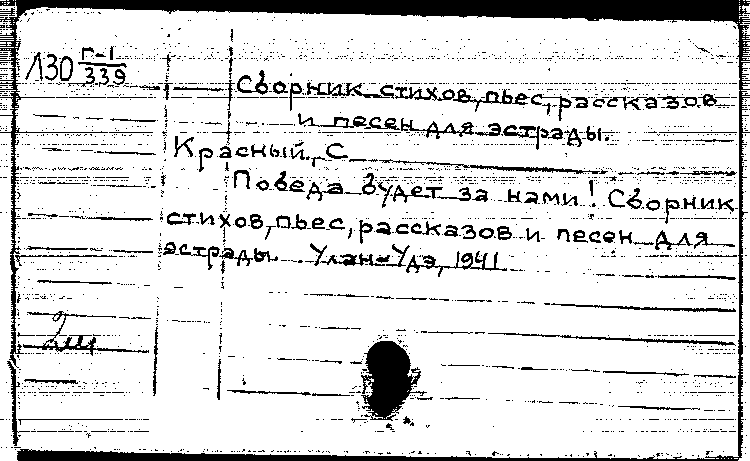 Л30 Г-1
339
Сборник стихов, пьес, рассказов
и песен для эстрады.
Красный, С.
Победа будет за нами! Сборник
стихов, пьес, рассказов и песен для
эстрады. Улан-Удэ, 1941